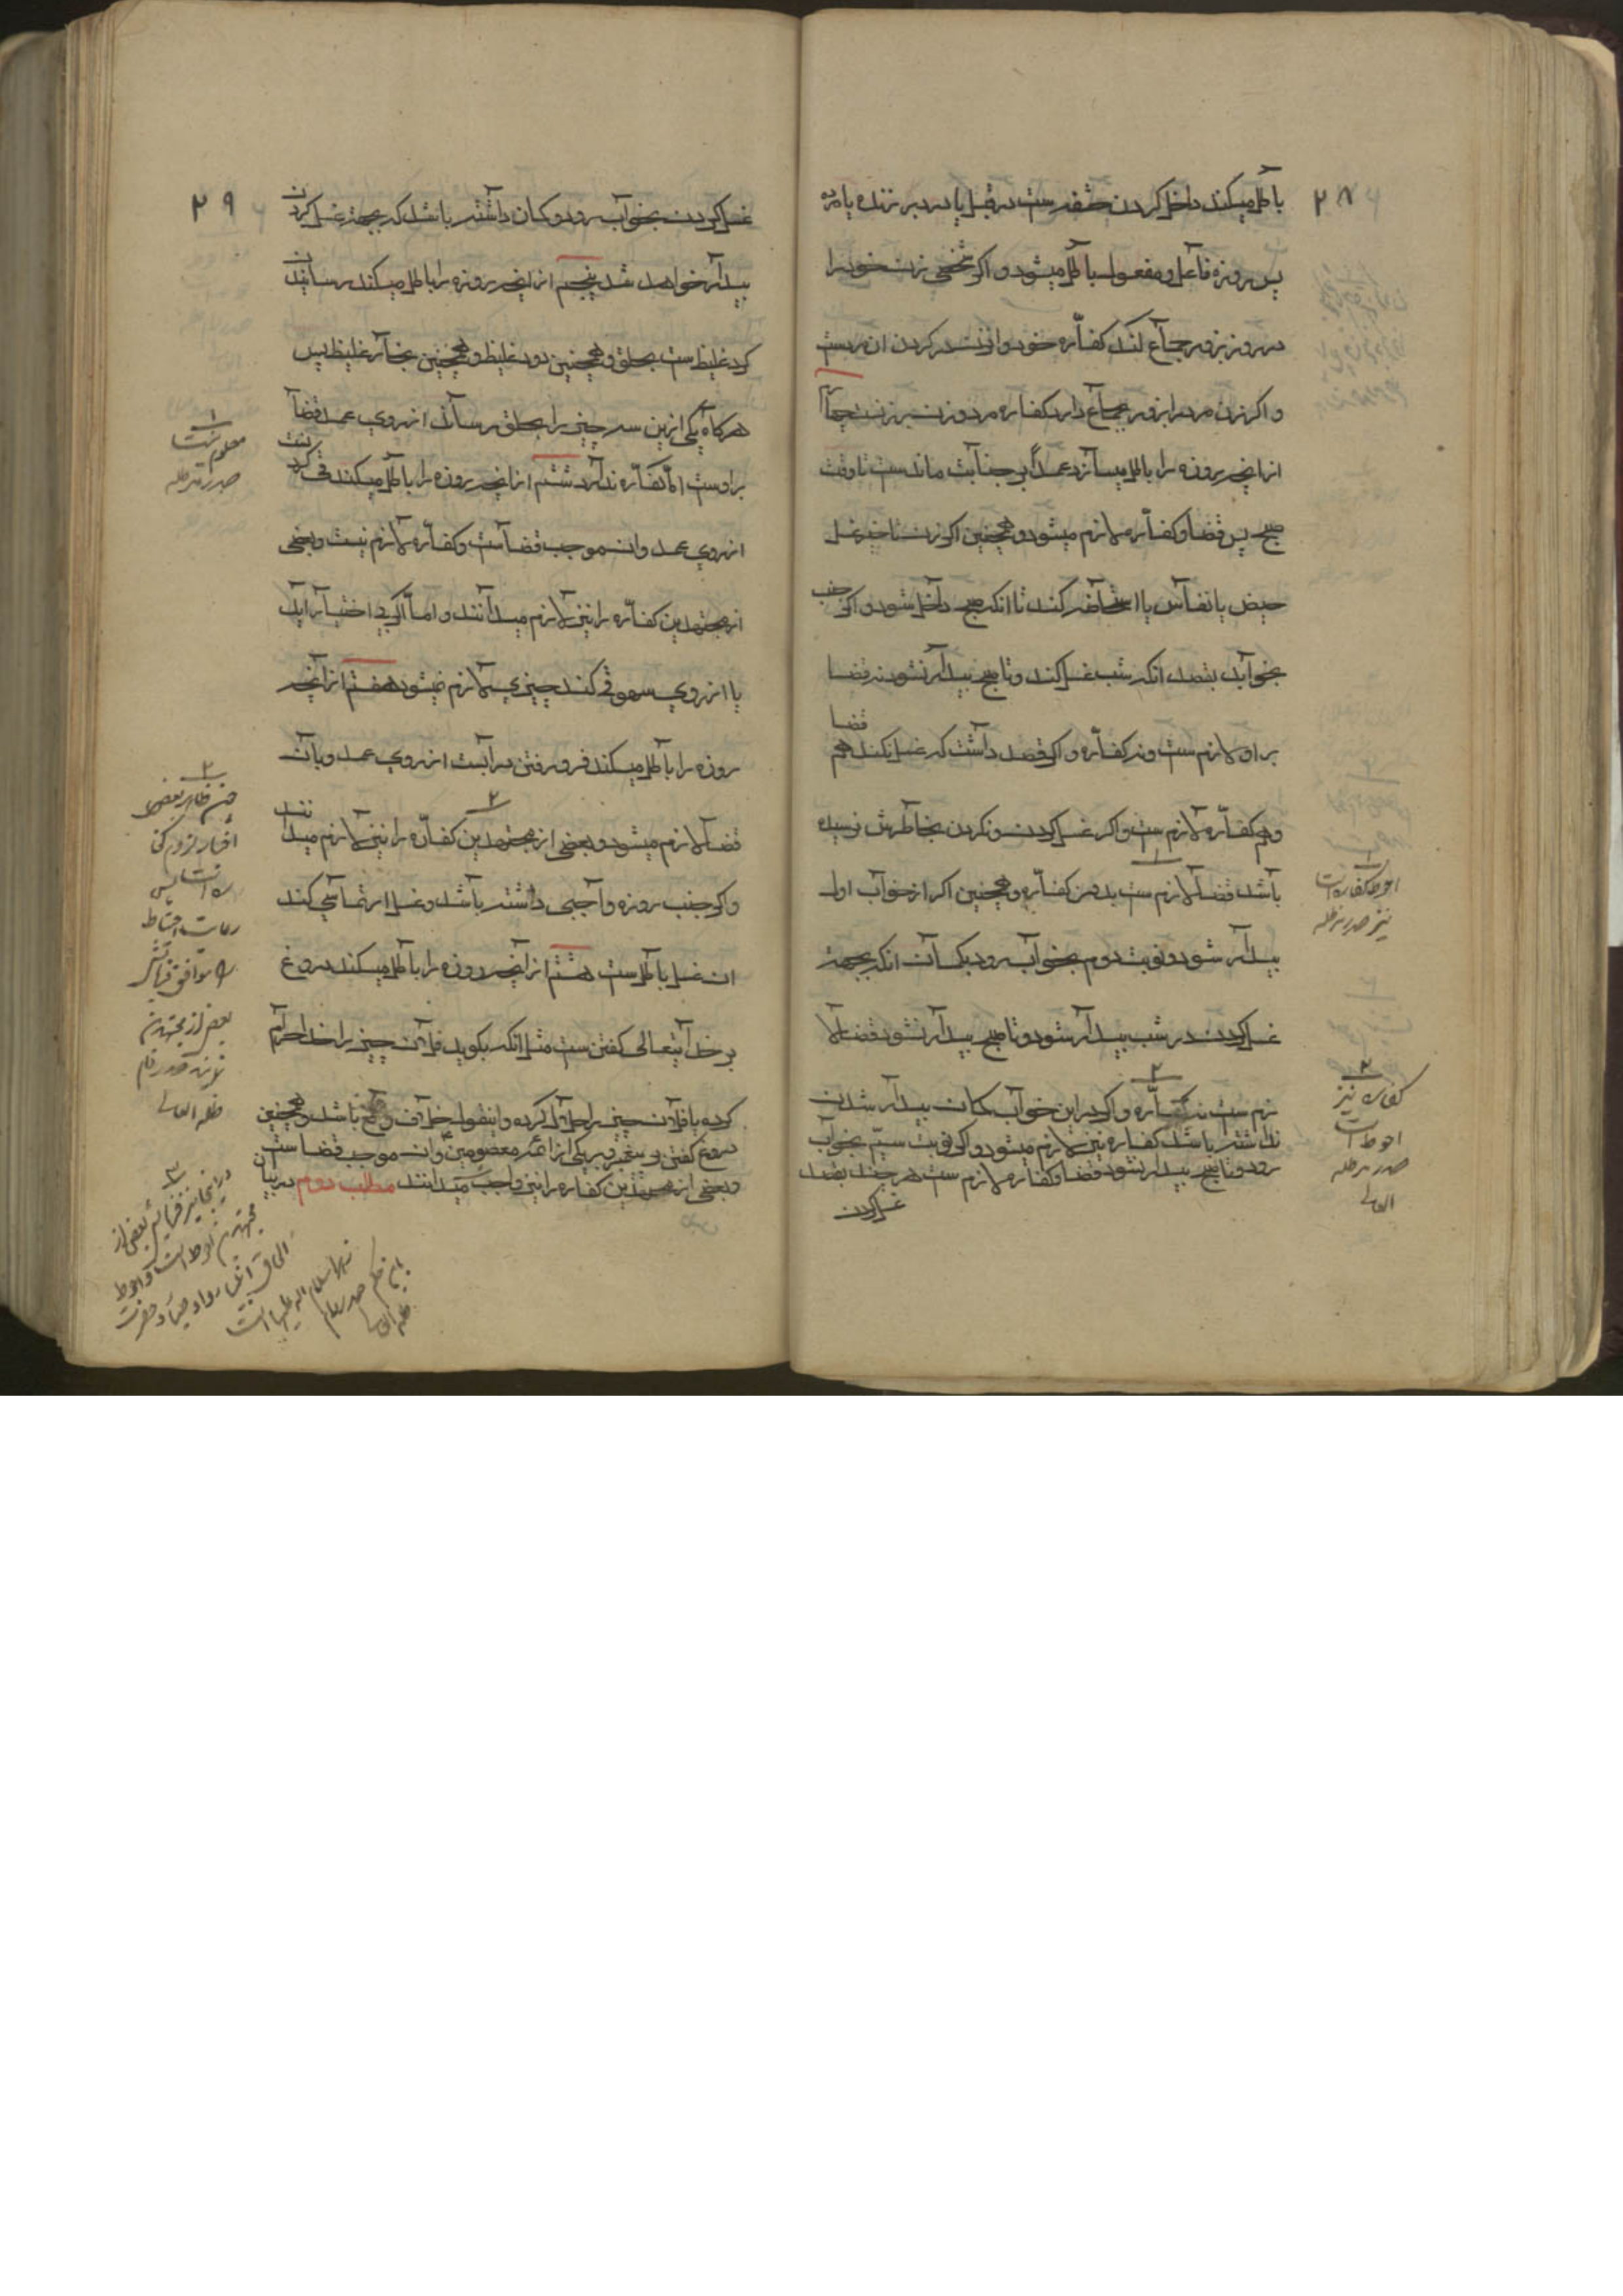 ۲۸
باطل میکند داخل کردن حشفه است در قبل یا در دبر زنده یا مرده
پس روزه فاعل و مفعول باطل میشود و اکر شخصی زن خود را
در روز بزور جماع کند کفاره خود و از زن در کردن ان مردست
و اکر زن مرد را بزور بجماع دارد کفاره مرد و زن بر زنست چهارم
از انچه روزه را باطل میسازد عمداً بر جنابت ماندست تا وقت
صبح پس قضا و کفّاره لازم میشود و همچنین اکر زن تاخیر غسل
حیض یا نفاس یا استحاضه کند تا انکه صبح داخل شود و اکر جنب
بخوابد بقصد انکه شب غسل کند و تا صبح بیدار نشود نه قضا
بر او لازم ست و نه کفّاره و اکر قصد داشت که غسل نکند هم قضا
و هم کفّاره لازم ست و اکر غسل کردن و نکردن بخاطرش نرسیده
باشد قضا لازم ست بدون کفّاره و همچنین اکر از خواب اول
بیدار شود و نوبت دوم بخواب رود بکمان انکه بجهة
غسل کردن در شب بیدار شود و تا صبح بیدار نشود قضا لا
زم ست نه کفّاره و اکر در این خواب کمان بیدار شدن
نداشته باشد کفاره نیز لازم میشود و اکر نوبت سیّم بخواب
رود و تا صبح بیدار نشود قضا و کفاره لازم ست هر چند بقصد
غسل کردن
۱
احوط کفاره است
نیز صدر مدظله
۲
کفاره نیز
احوط است
صدر مدظله
العالی
۲۹
غسل کردن بخواب رود و کمان داشته باشد که بجهة غسل کردن
بیدار خواهد شد پنجم از انچه روزه را باطل میکند رسانیدن
کرد غلیظ ست بحلق و همچنین دود غلیظ و همچنین بخار غلیظ پس
هرکاه یکی ازین سه چیز را بحلق رساند از روی عمد قضا
بر اوست امّا کفّاره ندارد ششم از انچه روزه را باطل میکند قی کردنست
از روی عمد و ان موجب قضا ست و کفّاره لازم نیست و بعضی
از مجتهدین کفّاره را نیز لازم میدانند و امّا اکر بی اختیار اید
یا از روی سهو قی کند چیزی لازم نمیشود هفتم از انچه
روزه را باطل میکند فرو رفتن در ابست از روی عمد و بآن
قضا لازم میشود و بعضی از مجتهدین کفّاره را نیز لازم میدانند
و اکر جنب روزه واجبی داشته باشد و غسل ارتماسی کند
ان غسل باطل ست هشتم از انچه روزه را باطل میکند دروغ
بر خدایتعالی کفتن ست مثل انکه بکوید فلان چیز را خدا حرام
کرده یا فلان چیز را حلال کرده و اینقول خلاف واقع باشد و همچنین
دروغ کفتن بر پیغمبر و بر یکی از ائمّه معصومین و ان موجب قضا ست
و بعضی از مجتهدین کفاره را نیز واجب میدانند مطلب دوم در بیان
۱
معلوم نیست
صدر مدظله
۲
چون ظاهر بعضی
اخبار لزوم کفا
ره است پس
رعایت احتیاط
بعضی از مجتهدین
ظله العالی
۳
در اینجا نیز بعضی از
مجتهدین و احوط